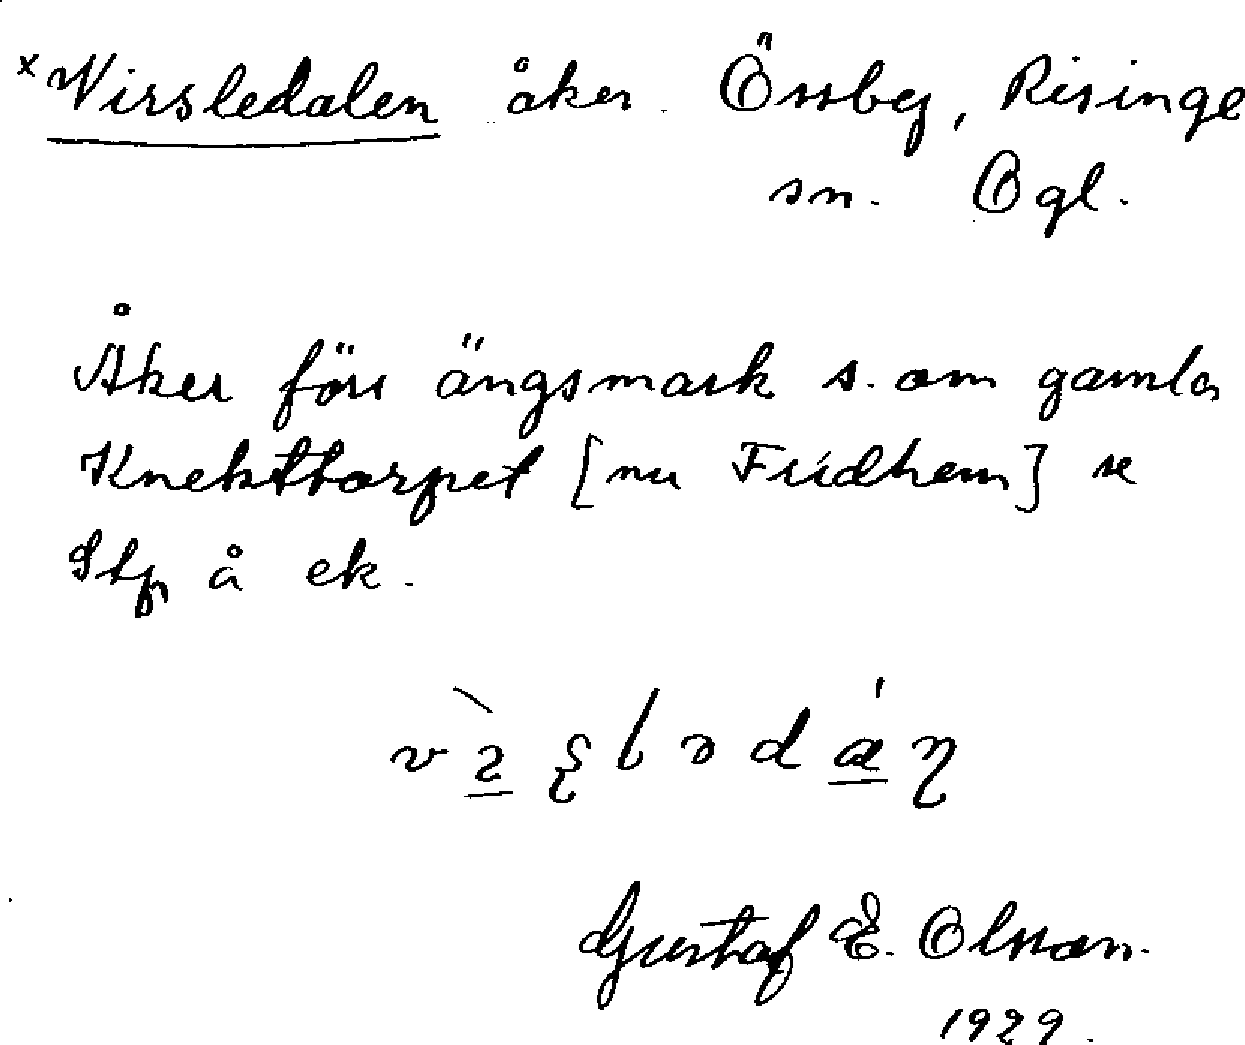 x Wirsledalen åker Örsby, Risinge
sn. Ögl.
Åker förr ängsmark s. om gamla
Knekttorpet [nu Fridhem] se
Stp å ek.
Gustaf E. Olsson.
1929.